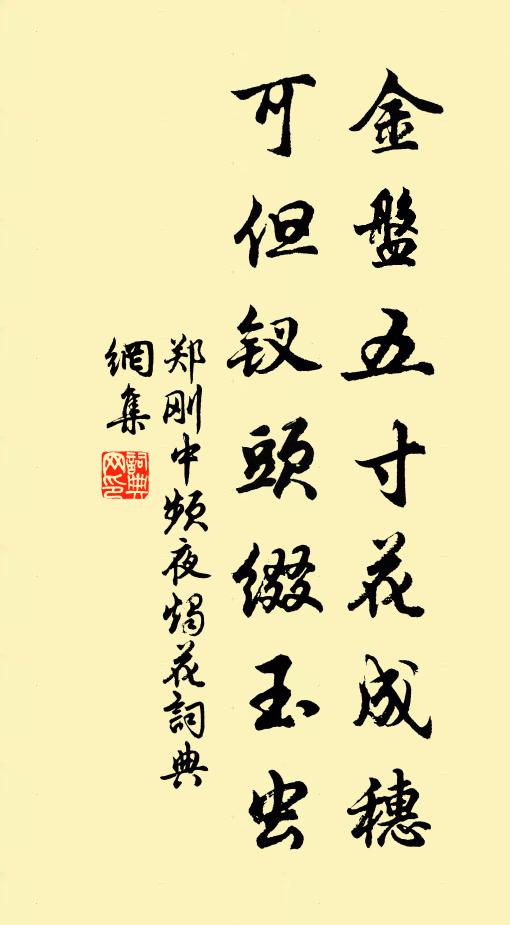 金盤五寸花成穗
可但钗頭綴玉虫
郑刚中频夜燭花詞典
網集
詞典網印